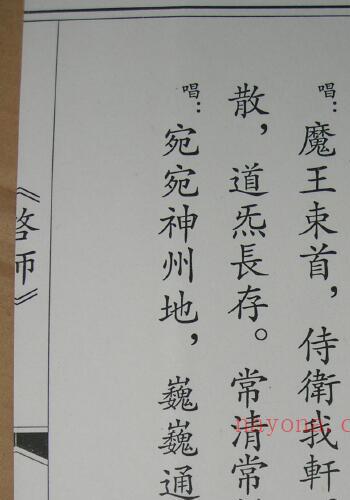 唱：魔王束首，侍衛我軒
散，道炁長存。常清常
唱：宛宛神州地，巍巍通
《啓師》
nayona.cn